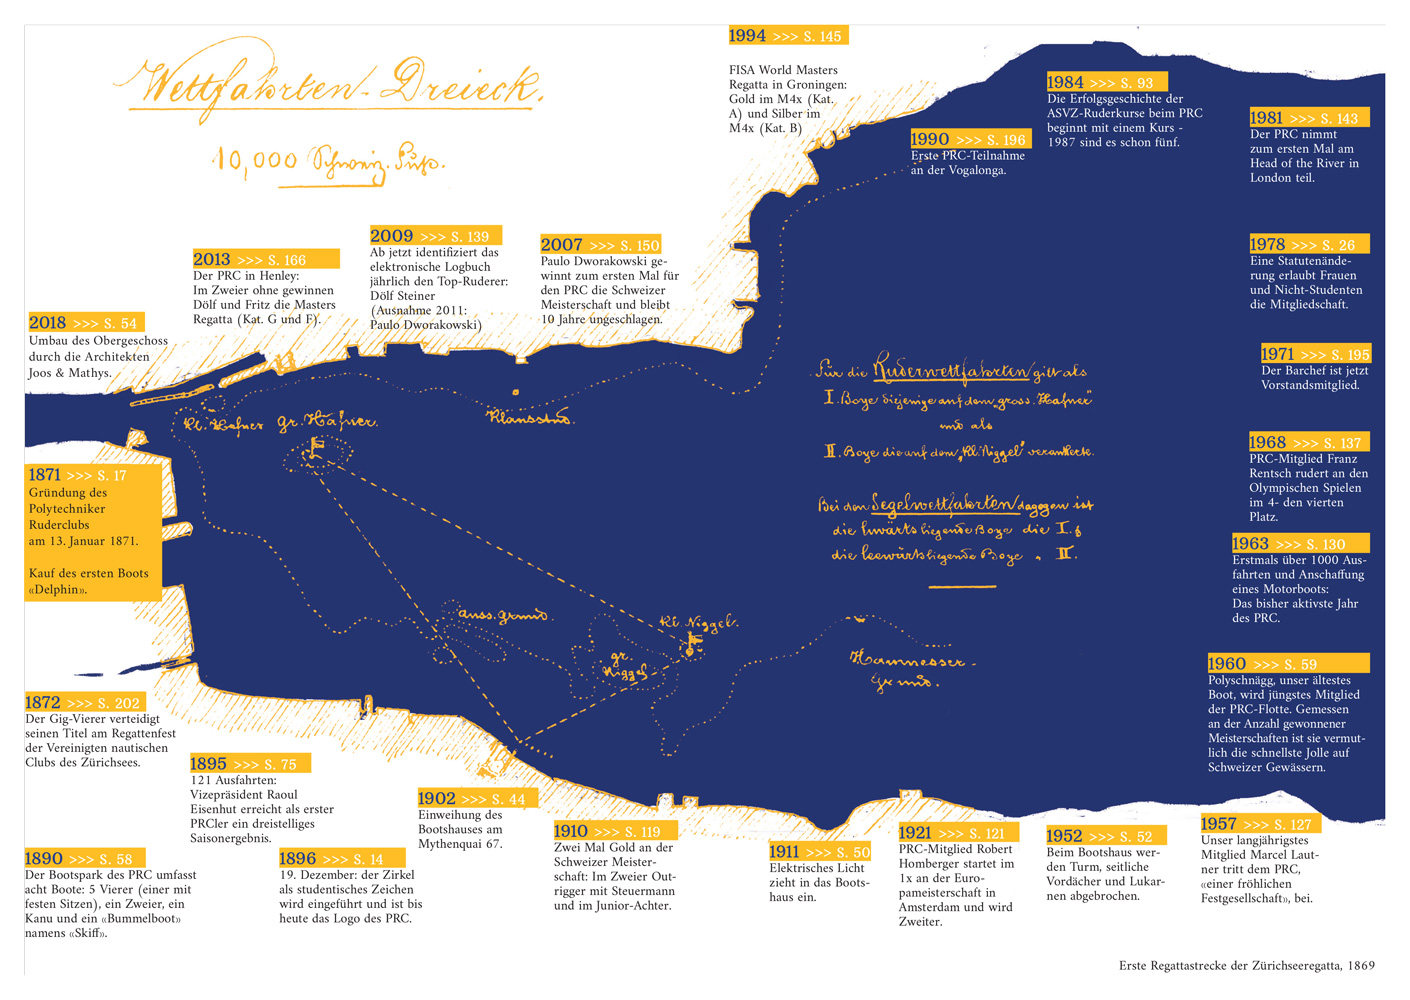 Wettfahrten-Dreieck.
10,000 Schweiz. Fuß.
1994 >>> S. 145
FISA World Masters
Regatta in Groningen:
Gold im M4x (Kat.
A) und Silber im
M4x (Kat. B)
1990 >>> S. 196
Erste PRC-Teilnahme
an der Vogalonga.
1984 >>> S. 93
Die Erfolgsgeschichte der
ASVZ-Ruderkurse beim PRC
beginnt mit einem Kurs -
1987 sind es schon fünf.
1981 >>> S. 143
Der PRC nimmt
zum ersten Mal am
Head of the River in
London teil.
2018 >>> S. 54
Umbau des Obergeschoss
durch die Architekten
Joos & Mathys.
2013 >>> S. 166
Der PRC in Henley:
Im Zweier ohne gewinnen
Dölf und Fritz die Masters
Regatta (Kat. G und F).
2009 >>> S. 139
Ab jetzt identifiziert das
elektronische Logbuch
jährlich den Top-Ruderer:
Dölf Steiner
(Ausnahme 2011:
Paulo Dworakowski)
2007 >>> S. 150
Paulo Dworakowski ge-
winnt zum ersten Mal für
den PRC die Schweizer
Meisterschaft und bleibt
10 Jahre ungeschlagen.
1978 >>> S. 26
Eine Statutenände-
rung erlaubt Frauen
und Nicht-Studenten
die Mitgliedschaft.
1971 >>> S. 195
Der Barchef ist jetzt
Vorstandsmitglied.
1968 >>> S. 137
PRC-Mitglied Franz
Rentsch rudert an den
Olympischen Spielen
im 4- den vierten
Platz.
1963 >>> S. 130
Erstmals über 1000 Aus-
fahrten und Anschaffung
eines Motorboots:
Das bisher aktivste Jahr
des PRC.
1960 >>> S. 59
Polyschnägg, unser ältestes
Boot, wird jüngstes Mitglied
der PRC-Flotte. Gemessen
an der Anzahl gewonnener
Meisterschaften ist sie vermut-
lich die schnellste Jolle auf
Schweizer Gewässern.
Für die Ruderwettfahrten gilt als
I. Boye diejenige auf dem „gross. Hafner"
und als
II. Boye die auf dem „Kl. Niggel" verankerte.
Bei den Segelwettfahrten dagegen ist
die luwärts liegende Boye die I. &
die leewärts liegende Boye „ II.
Kl. Hafner gr. Hafner.
Klausstud.
auss. Grund.
Kl. Niggel.
gr.
Niggel.
Hammesser-
Grund.
1871 >>> S. 17
Gründung des
Polytechniker
Ruderclubs
am 13. Januar 1871.
Kauf des ersten Boots
«Delphin».
1872 >>> S. 202
Der Gig-Vierer verteidigt
seinen Titel am Regattenfest
der Vereinigten nautischen
Clubs des Zürichsees.
1890 >>> S. 58
Der Bootspark des PRC umfasst
acht Boote: 5 Vierer (einer mit
festen Sitzen), ein Zweier, ein
Kanu und ein «Bummelboot»
namens «Skiff».
1895 >>> S. 75
121 Ausfahrten:
Vizepräsident Raoul
Eisenhut erreicht als erster
PRCler ein dreistelliges
Saisonergebnis.
1896 >>> S. 14
19. Dezember: der Zirkel
als studentisches Zeichen
wird eingeführt und ist bis
heute das Logo des PRC.
1902 >>> S. 44
Einweihung des
Bootshauses am
Mythenquai 67.
1910 >>> S. 119
Zwei Mal Gold an der
Schweizer Meister-
schaft: Im Zweier Out-
rigger mit Steuermann
und im Junior-Achter.
1911 >>> S. 50
Elektrisches Licht
zieht in das Boots-
haus ein.
1921 >>> S. 121
PRC-Mitglied Robert
Homberger startet im
1x an der Euro-
pameisterschaft in
Amsterdam und wird
Zweiter.
1952 >>> S. 52
Beim Bootshaus wer-
den Turm, seitliche
Vordächer und Lukar-
nen abgebrochen.
1957 >>> S. 127
Unser langjährigstes
Mitglied Marcel Laut-
ner tritt dem PRC,
«einer fröhlichen
Festgesellschaft», bei.
Erste Regattastrecke der Zürichseeregatta, 1869